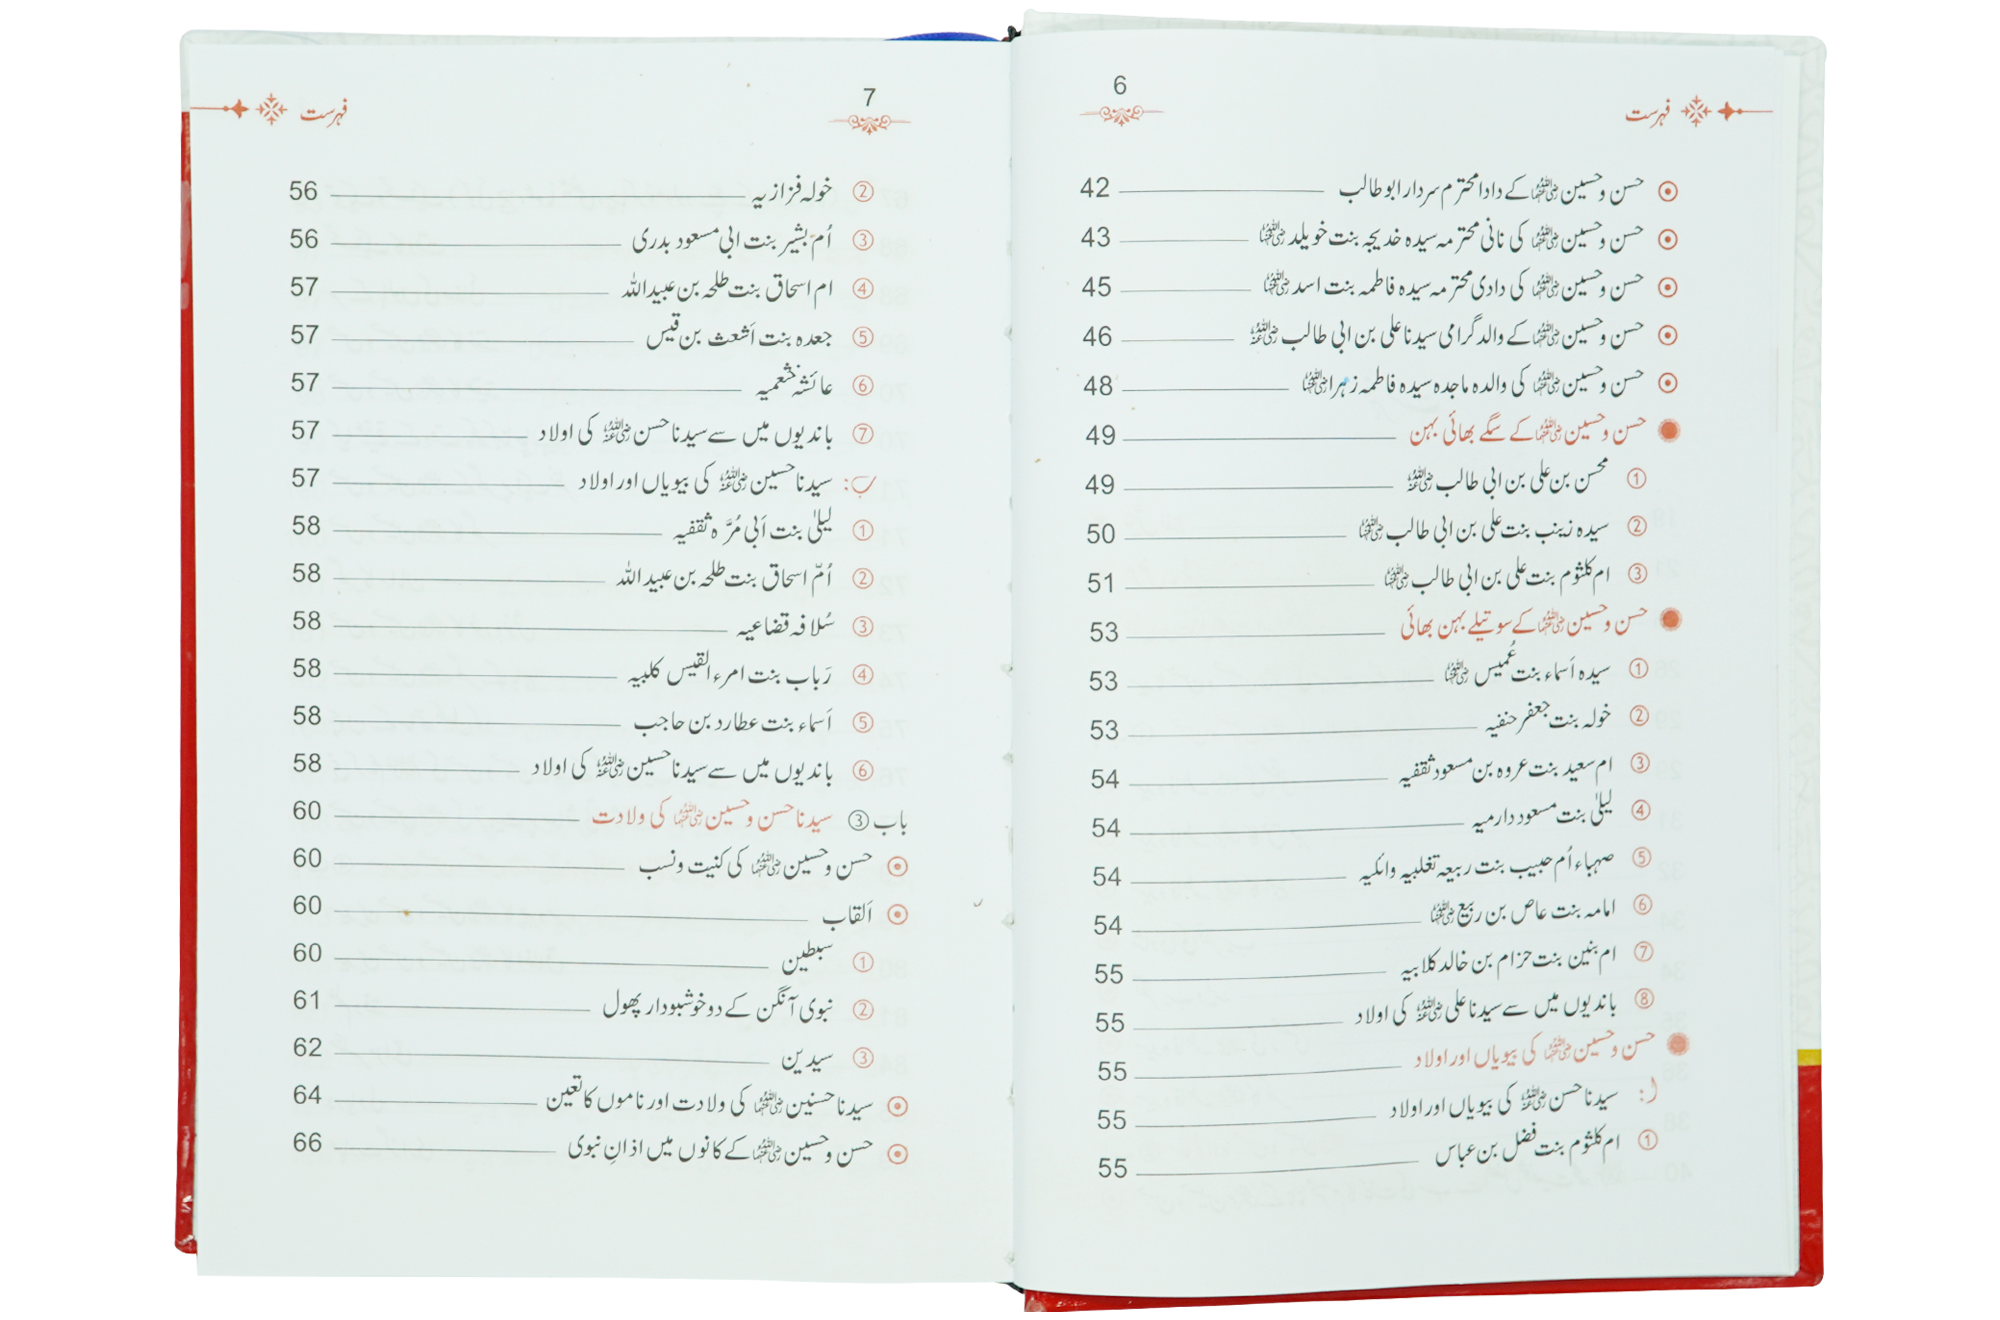 فہرست
6
◉ حسن و حسین رضی اللہ عنہما کے دادا محترم سردار ابو طالب 42
◉ حسن و حسین رضی اللہ عنہما کی نانی محترمہ سیدہ خدیجہ بنت خویلد رضی اللہ عنہا 43
◉ حسن و حسین رضی اللہ عنہما کی دادی محترمہ سیدہ فاطمہ بنت اسد رضی اللہ عنہا 45
◉ حسن و حسین رضی اللہ عنہما کے والد گرامی سیدنا علی بن ابی طالب رضی اللہ عنہ 46
◉ حسن و حسین رضی اللہ عنہما کی والدہ ماجدہ سیدہ فاطمہ زہرا رضی اللہ عنہا 48
حسن و حسین رضی اللہ عنہما کے سگے بھائی بہن 49
① محسن بن علی بن ابی طالب رضی اللہ عنہ 49
② سیدہ زینب بنت علی بن ابی طالب رضی اللہ عنہا 50
③ ام کلثوم بنت علی بن ابی طالب رضی اللہ عنہا 51
حسن و حسین رضی اللہ عنہما کے سوتیلے بہن بھائی 53
① سیدہ اَسماء بنت عُمیس رضی اللہ عنہا 53
② خولہ بنت جعفر حنفیہ 53
③ ام سعید بنت عروہ بن مسعود ثقفیہ 54
④ لیلیٰ بنت مسعود دارمیہ 54
⑤ صہباء اُم حبیب بنت ربیعہ تغلبیہ وائلیہ 54
⑥ امامہ بنت عاص بن ربیع رضی اللہ عنہا 54
⑦ ام بنین بنت حزام بن خالد کلابیہ 55
⑧ باندیوں میں سے سیدنا علی رضی اللہ عنہ کی اولاد 55
حسن و حسین رضی اللہ عنہما کی بیویاں اور اولاد 55
(: سیدنا حسن رضی اللہ عنہ کی بیویاں اور اولاد 55
① ام کلثوم بنت فضل بن عباس 55
7
فہرست
② خولہ فزازیہ 56
③ اُم بشیر بنت ابی مسعود بدری 56
④ ام اسحاق بنت طلحہ بن عبید اللہ 57
⑤ جعدہ بنت اَشعث بن قیس 57
⑥ عائشہ خثعمیہ 57
⑦ باندیوں میں سے سیدنا حسن رضی اللہ عنہ کی اولاد 57
ب: سیدنا حسین رضی اللہ عنہ کی بیویاں اور اولاد 57
① لیلیٰ بنت اَبی مُرَّہ ثقفیہ 58
② اُمّ اسحاق بنت طلحہ بن عبید اللہ 58
③ سُلافہ قضاعیہ 58
④ رَباب بنت امرء القیس کلبیہ 58
⑤ اَسماء بنت عطارد بن حاجب 58
⑥ باندیوں میں سے سیدنا حسین رضی اللہ عنہ کی اولاد 58
باب ③ سیدنا حسن و حسین رضی اللہ عنہما کی ولادت 60
◉ حسن و حسین رضی اللہ عنہما کی کنیت و نسب 60
◉ اَلقاب 60
① سبطین 60
② نبوی آنگن کے دو خوشبودار پھول 61
③ سیدین 62
◉ سیدنا حسنین رضی اللہ عنہما کی ولادت اور ناموں کا تعین 64
◉ حسن و حسین رضی اللہ عنہما کے کانوں میں اذانِ نبوی 66